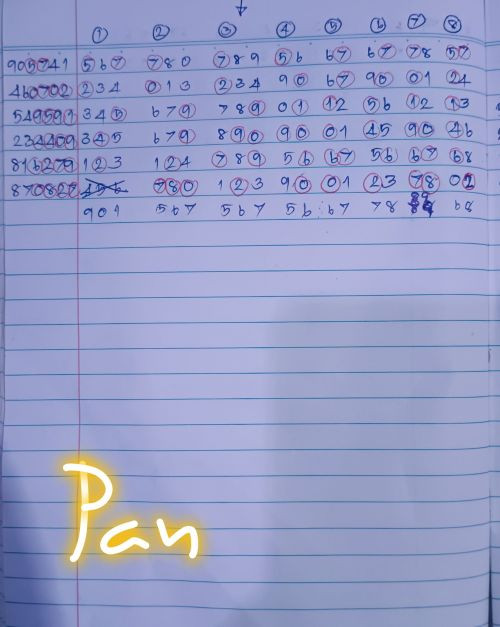 ① ② ③ ④ ⑤ ⑥ ⑦ ⑧
905741 567 780 789 56 67 67 78 57
460702 234 013 234 90 67 90 01 24
549591 345 679 789 01 12 56 12 13
234409 345 679 890 90 01 45 90 46
816279 123 124 789 56 67 56 67 68
870827 456 780 123 90 01 23 78 02
901 567 567 56 67 78 89 68
Pan